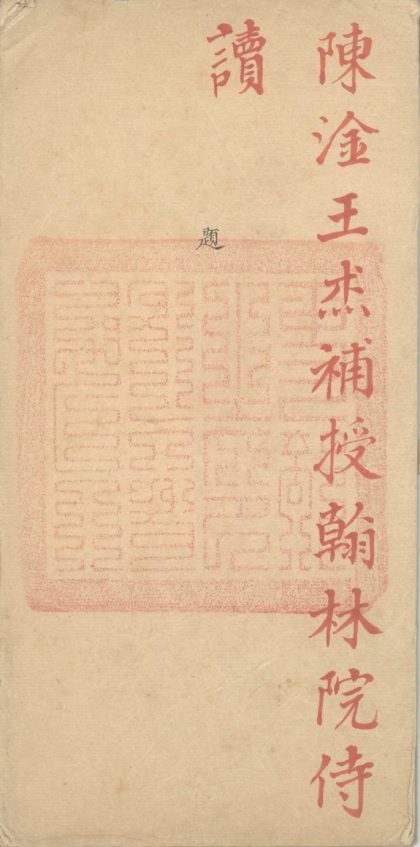 陳淦王杰補授翰林院侍
讀
題